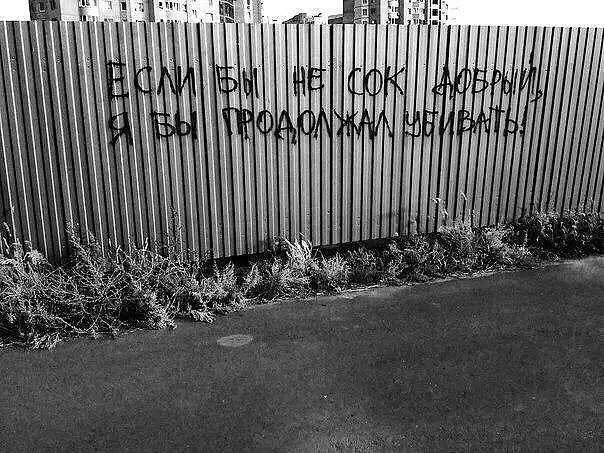 ЕСЛИ БЫ НЕ СОК ДОБРЫЙ,
Я БЫ ПРОДОЛЖАЛ УБИВАТЬ!